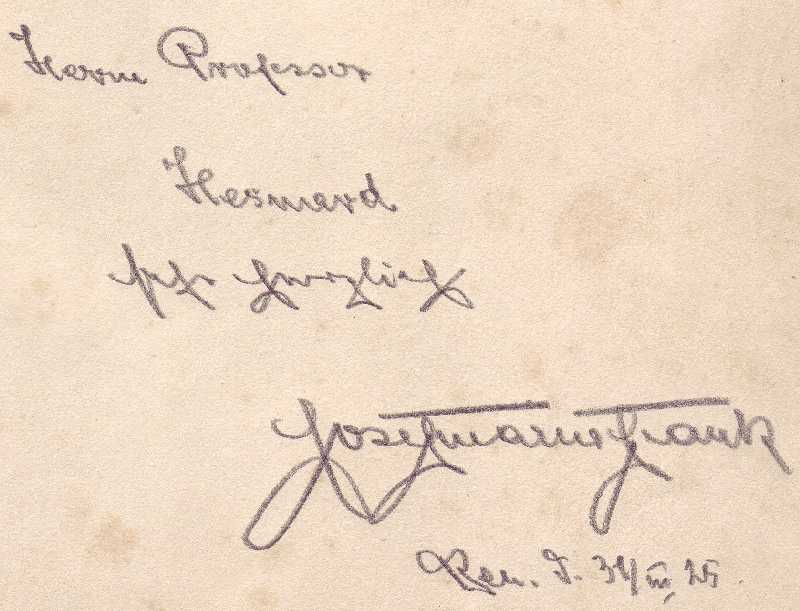 Herrn Professor
Hesnard
sehr herzlich
Josef Maria Frank
31/III 25.